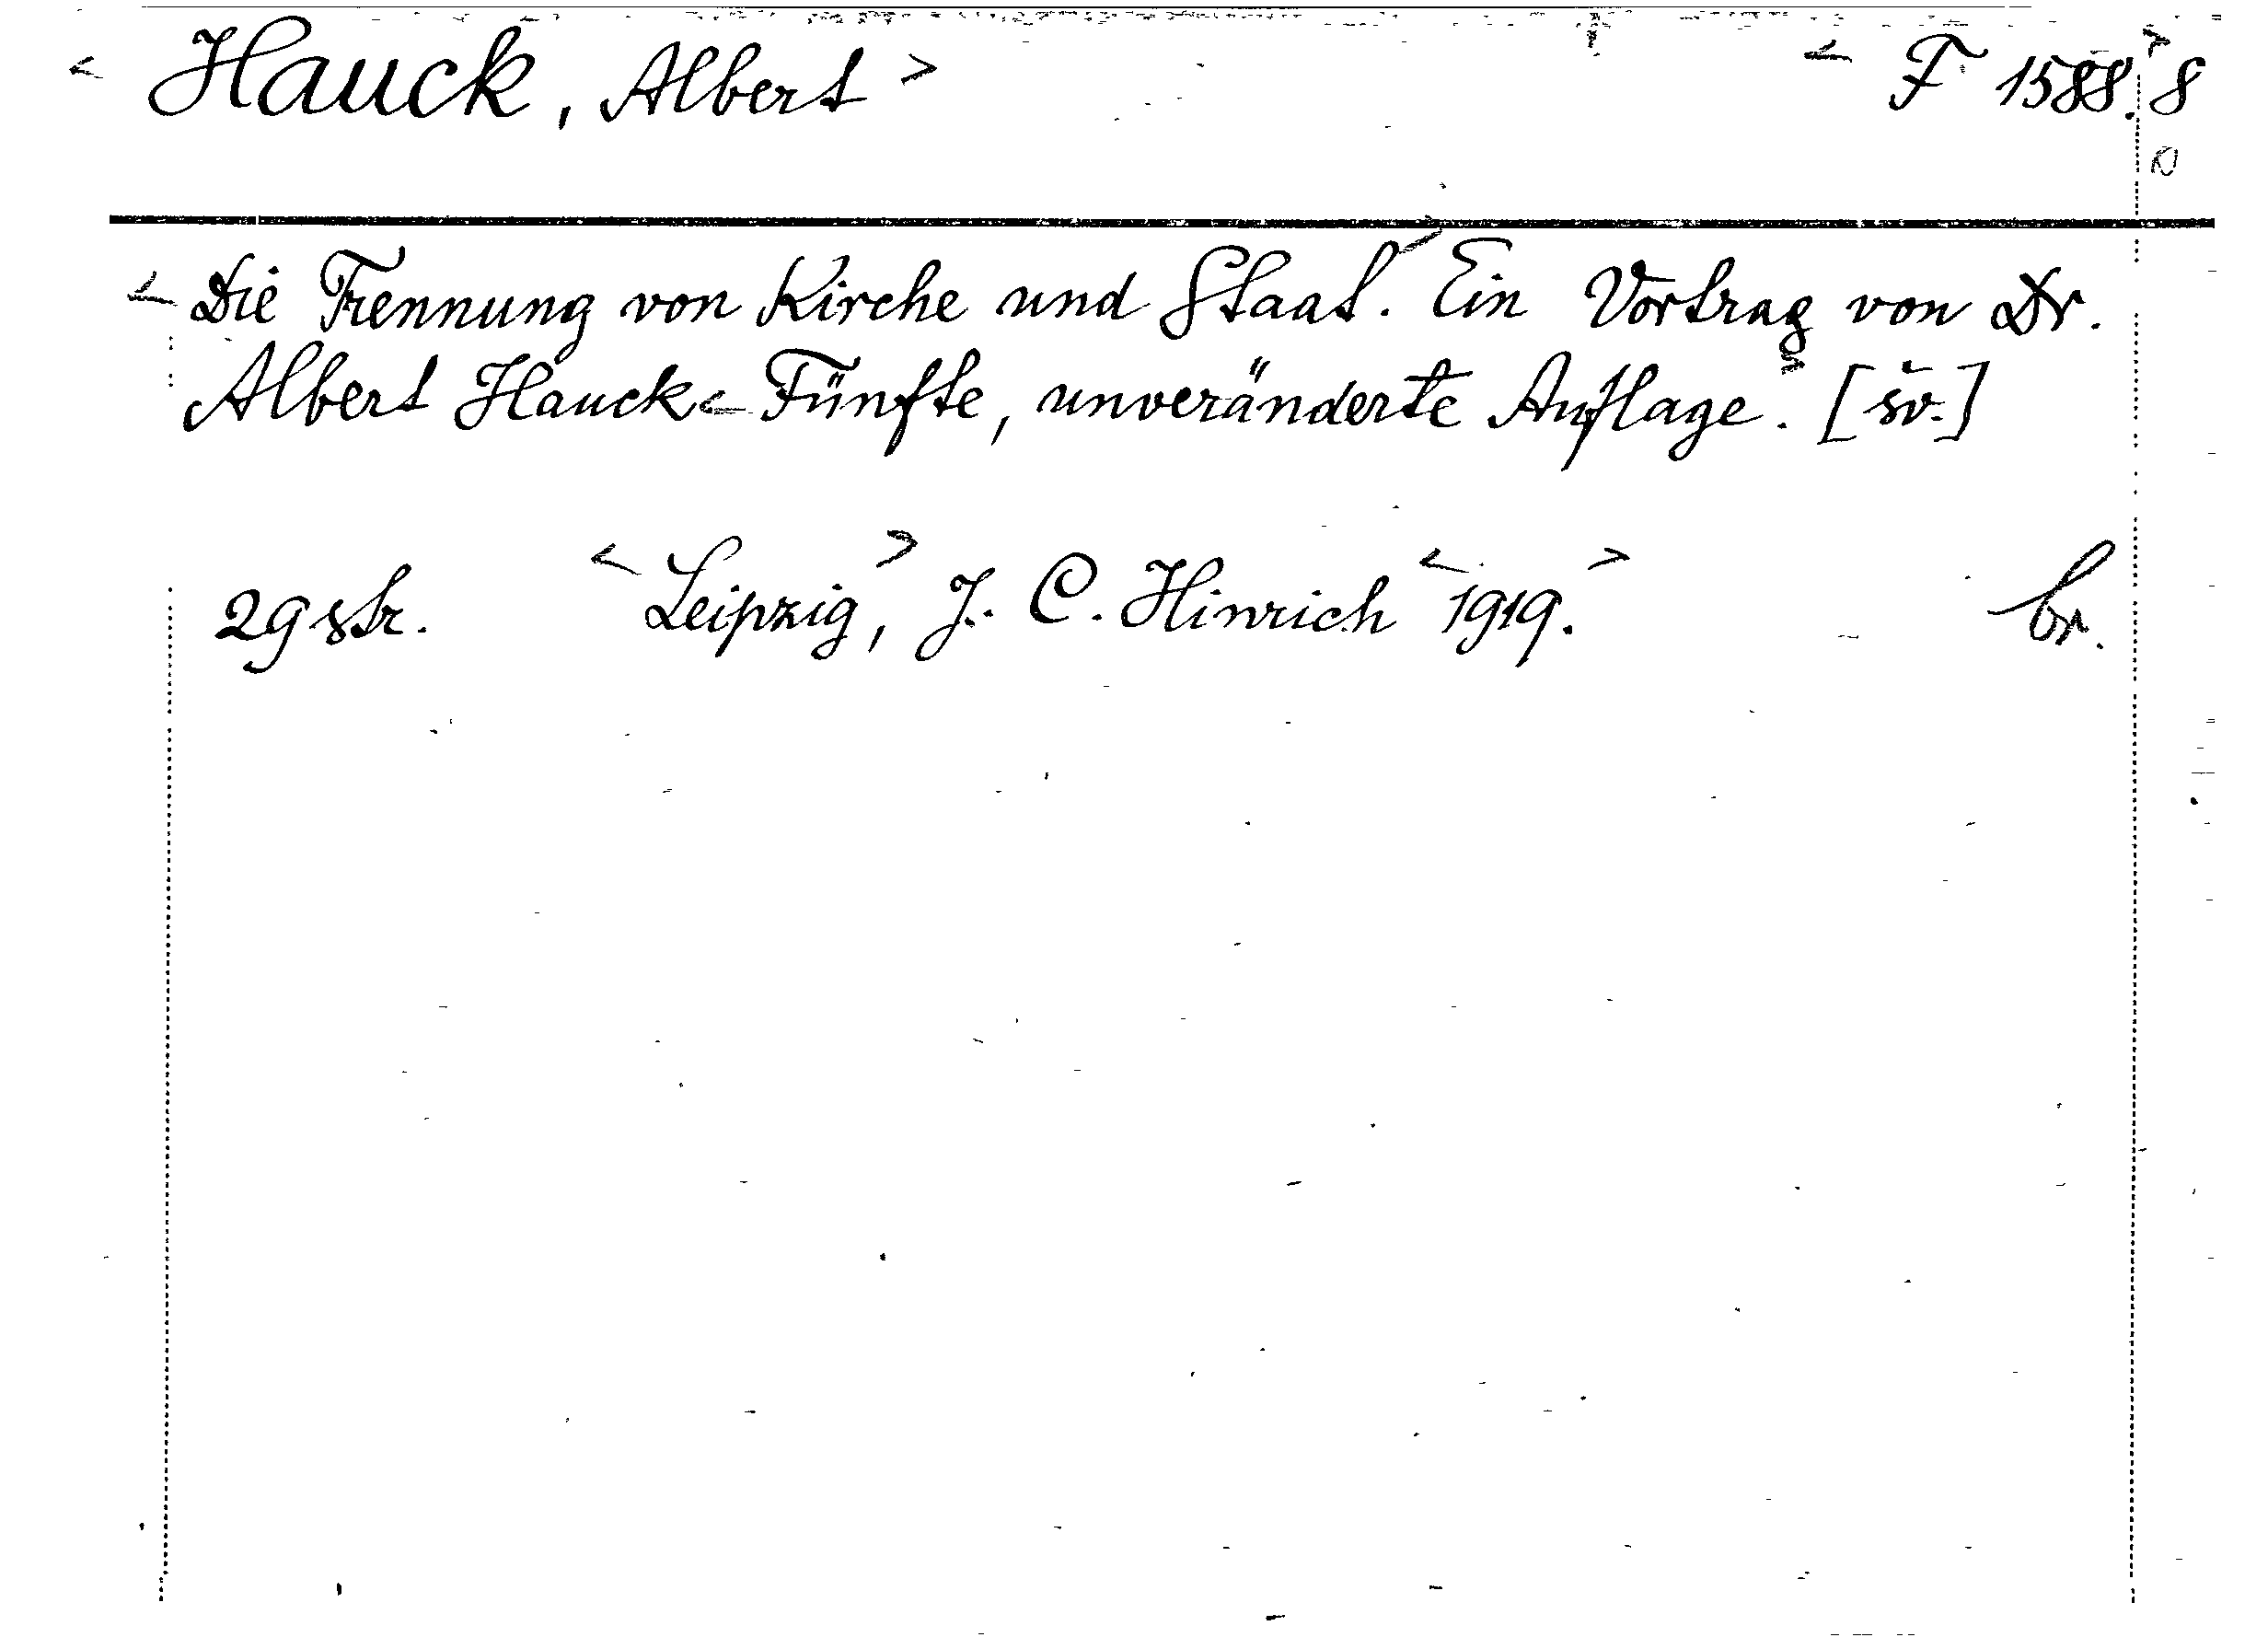 < Hauck, Albert > < F 1588.> 8
< Die Trennung von Kirche und Staat.> Ein Vortrag von Dr.
Albert Hauck < Fünfte, unveränderte Auflage.> [šv.]
29 str. < Leipzig >, J. C. Hinrich < 1919. > br.